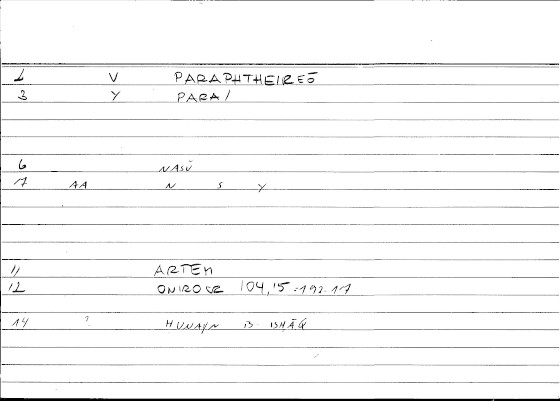 1 V PARAPHTHEIREŌ
3 Y PARA/
6 NASŪ
7 AA N S Y
11 ARTEM
12 ONIROCR 104,15 = 192.17
14 ? HUNAYN B. ISHĀQ